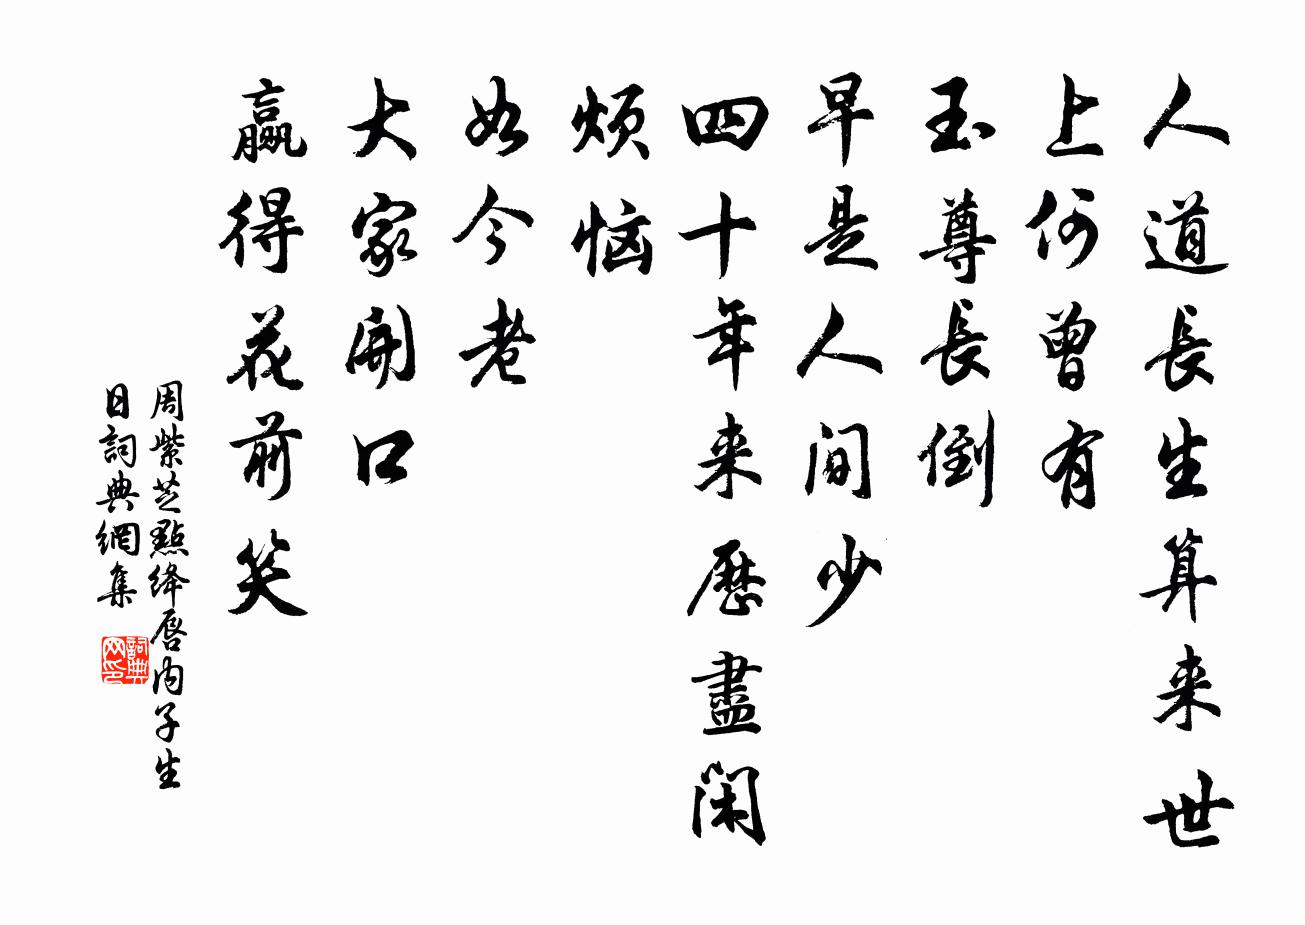 人道長生算来世
上何曾有
玉尊長倒
早是人间少
四十年来歷盡閑
烦恼
如今老
大家開口
赢得花前笑
周紫芝點绛唇内子生
日詞典網集
詞典
网印